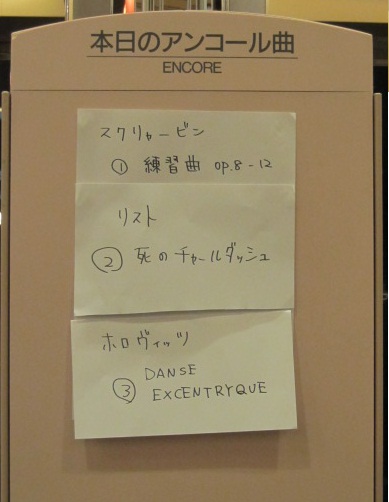 本日のアンコール曲
ENCORE
スクリャービン
① 練習曲 op.8-12
リスト
② 死のチャールダッシュ
ホロヴィッツ
③ DANSE
EXCENTRYQUE